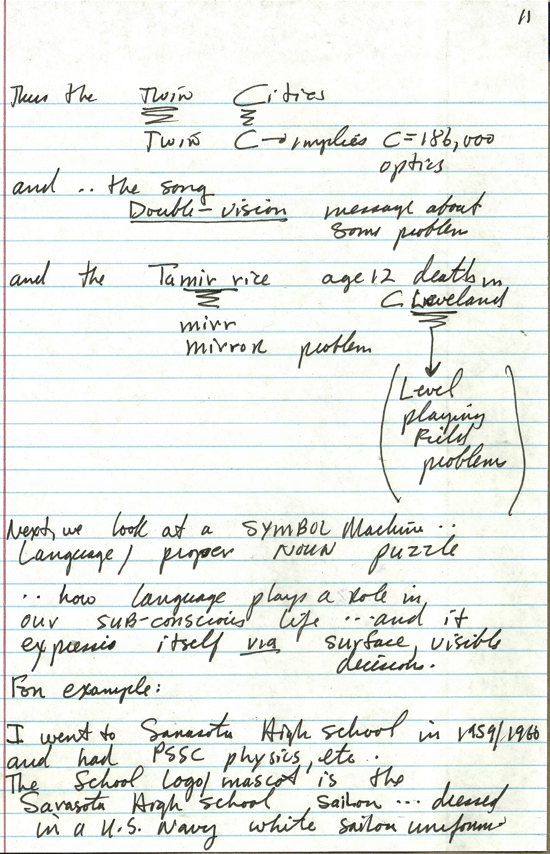 11
Thus the Twin Cities
Twin C → implies C = 186,000
optics
and .. the song
Double-vision message about
some problem
and the Tamir rice age 12 death in
Cleveland
mirr
mirror problem
(Level
playing
Field
problem)
Next, we look at a SYMBOL Machine ..
Language / proper NOUN puzzle
.. how language plays a role in
our sub-conscious life ... and it
expresses itself via surface, visible
decisions.
For example:
I went to Sarasota High school in 1959/1960
and had PSSC physics, etc ..
The School logo/mascot is the
Sarasota High school Sailor ... dressed
in a U.S. Navy white sailor uniform